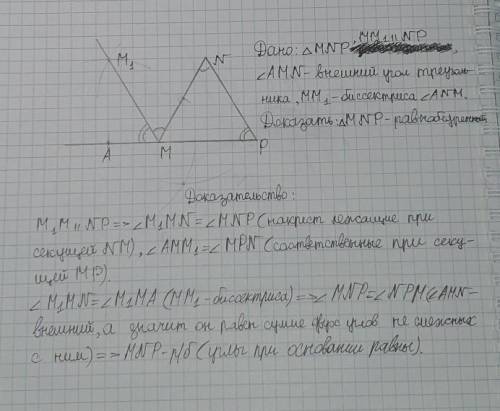 M₁
N
A
M
P
Дано: △MNP, MM₁ || NP
∠AMN - внешний угол треуголь-
ника, MM₁ - биссектриса ∠ANM.
Доказать: △MNP - равнобедренный
Доказательство:
M₁M || NP => ∠M₁MN = ∠MNP (накрест лежащие при
секущей NM), ∠AMM₁ = ∠MPN (соответственные при секу-
щей MP).
∠M₁MN = ∠M₁MA (MM₁ - биссектриса) => ∠MNP = ∠NPM (∠AMN -
внешний, а значит он равен сумме двух углов не смежных
с ним) => MNP - р/б (углы при основании равны).